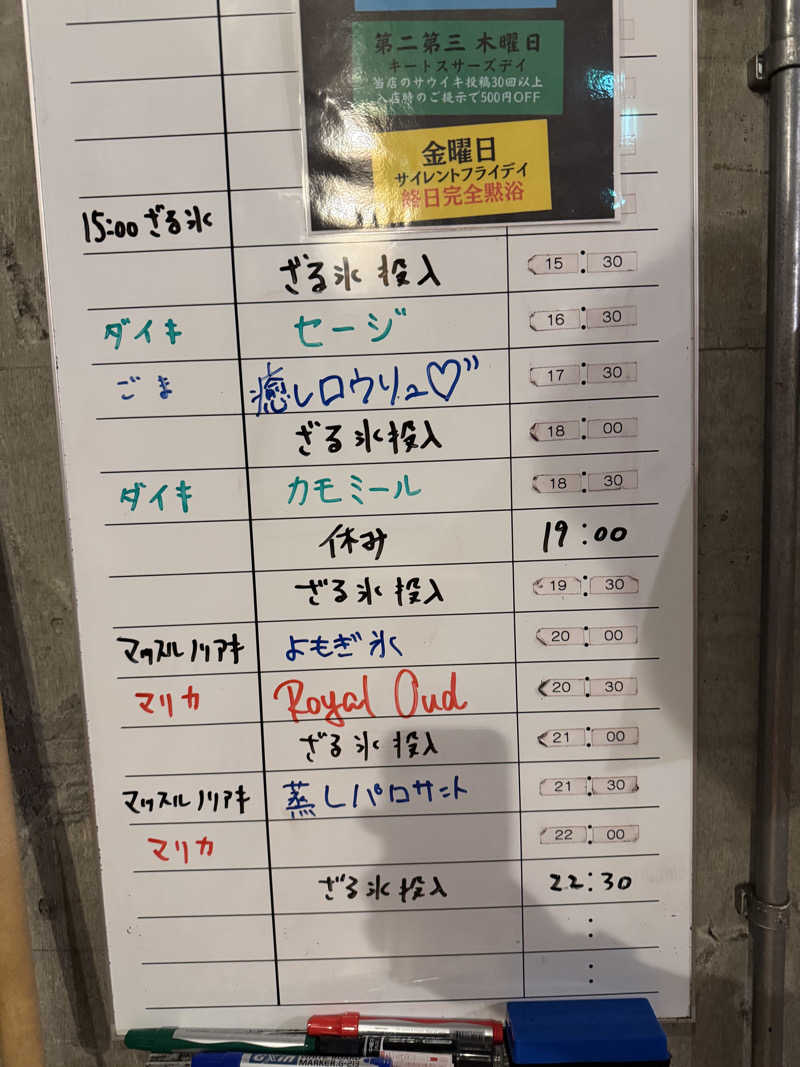 第二第三 木曜日
キートスサーズデイ
当店のサウイキ投稿30回以上
入店時のご提示で500円OFF
金曜日
サイレントフライデイ
終日完全黙浴
15:00 ざる氷
ざる氷投入 15:30
ダイキ セージ 16:30
ごま 癒しロウリュ♡" 17:30
ざる氷投入 18:00
ダイキ カモミール 18:30
休み 19:00
ざる氷投入 19:30
マッスルノリアキ よもぎ氷 20:00
マリカ Royal Oud 20:30
ざる氷投入 21:00
マッスルノリアキ 蒸しパロサント 21:30
マリカ 22:00
ざる氷投入 22:30
:
: